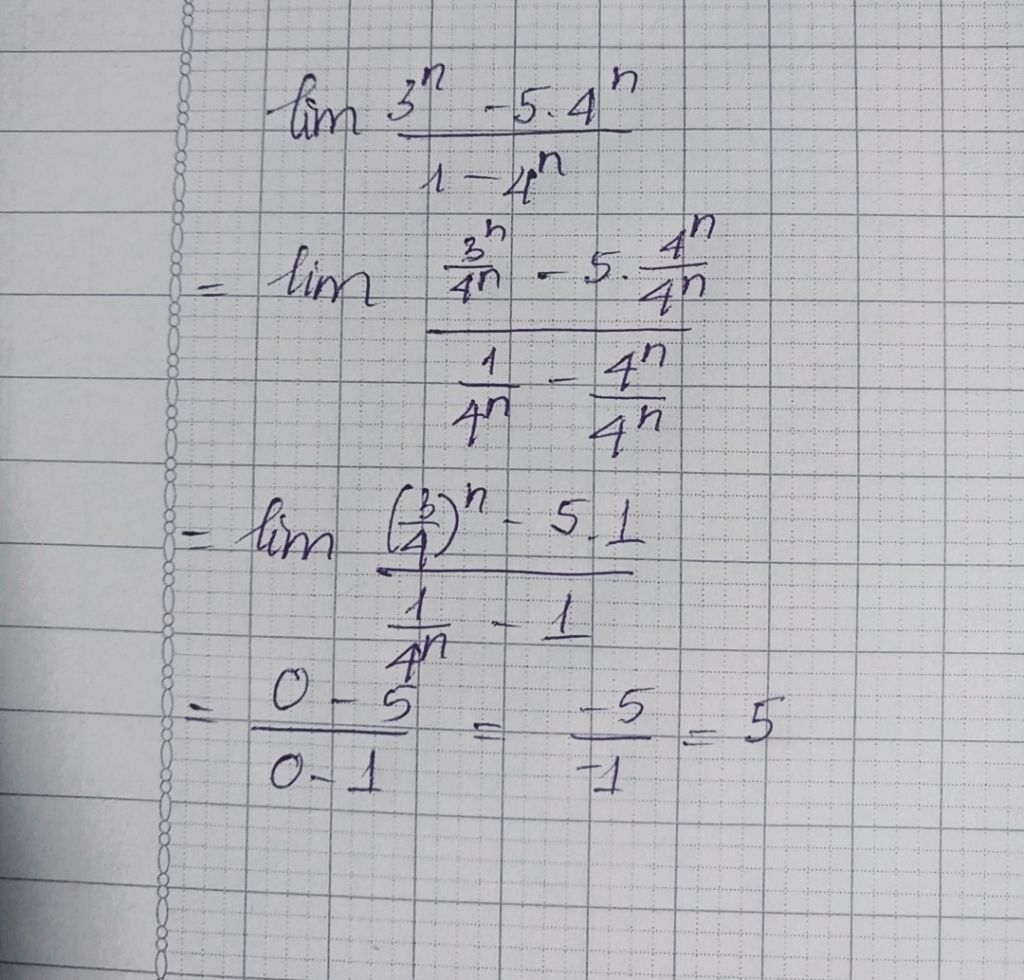 lim (3^n - 5.4^n)/(1 - 4^n)
= lim (3^n/4^n - 5.4^n/4^n)/(1/4^n - 4^n/4^n)
= lim ((3/4)^n - 5.1)/(1/4^n - 1)
= (0 - 5)/(0 - 1) = -5/-1 = 5